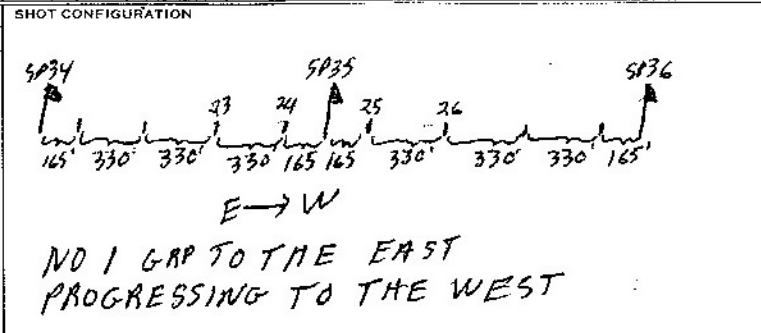 SHOT CONFIGURATION
SP34 SP35 SP36
23 24 25 26
165' 330' 330' 330' 165 165 330' 330' 330' 165'
E → W
NO 1 GRP TO THE EAST
PROGRESSING TO THE WEST